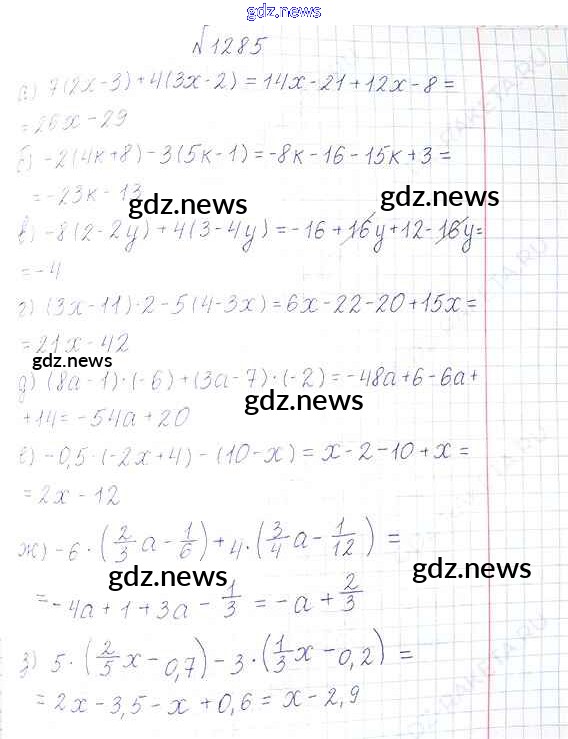 gdz.news
№1285
а) 7(2x-3)+4(3x-2)=14x-21+12x-8=
=26x-29
б) -2(4к+8)-3(5к-1)=-8к-16-15к+3=
=-23к-13
gdz.news
gdz.news
в) -8(2-2y)+4(3-4y)=-16+16y+12-16y=
=-4
г) (3x-11)·2-5(4-3x)=6x-22-20+15x=
=21x-42
gdz.news
д) (8a-1)·(-6)+(3a-7)·(-2)=-48a+6-6a+
gdz.news
+14=-54a+20
е) -0,5·(-2x+4)-(10-x)=x-2-10+x=
=2x-12
ж) -6·(2/3 a-1/6)+4·(3/4 a-1/12)=
gdz.news
gdz.news
=-4a+1+3a-1/3=-a+2/3
з) 5·(2/5 x-0,7)-3·(1/3 x-0,2)=
=2x-3,5-x+0,6=x-2,9